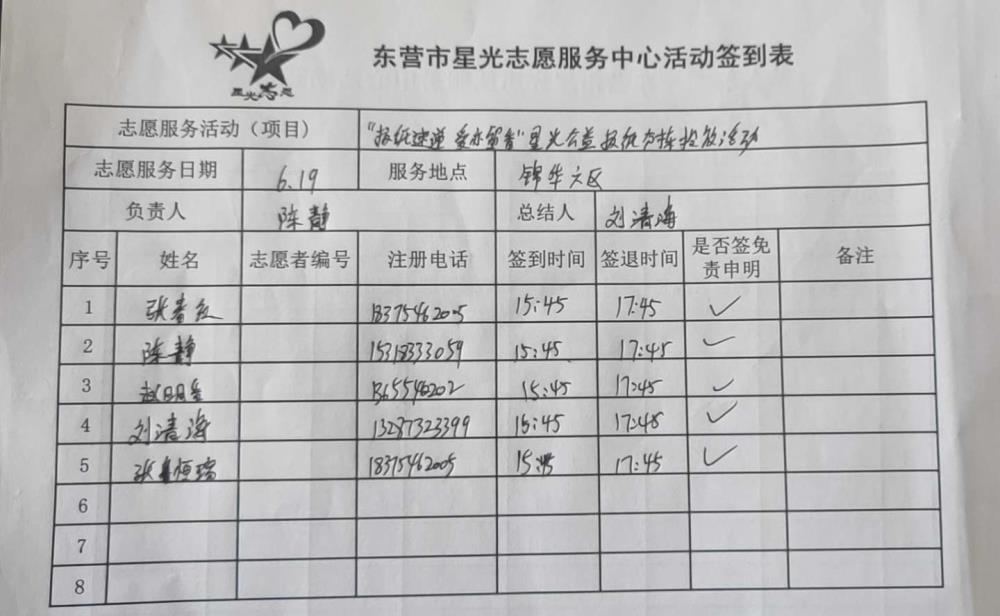 星光志愿
东营市星光志愿服务中心活动签到表
志愿服务活动（项目） "报纸速递 爱心留香"星光公益报纸分拣投放活动
志愿服务日期 6.19 服务地点 锦华六区
负责人 陈静 总结人 刘清海
序号 姓名 志愿者编号 注册电话 签到时间 签退时间 是否签免责申明 备注
1 张春红 18375462005 15:45 17:45 ✓
2 陈静 15318333059 15:45 17:45 ✓
3 赵明星 1365546202 15:45 17:45 ✓
4 刘清海 13287323399 15:45 17:45 ✓
5 张恒瑞 18375462005 15: 17:45 ✓
6
7
8